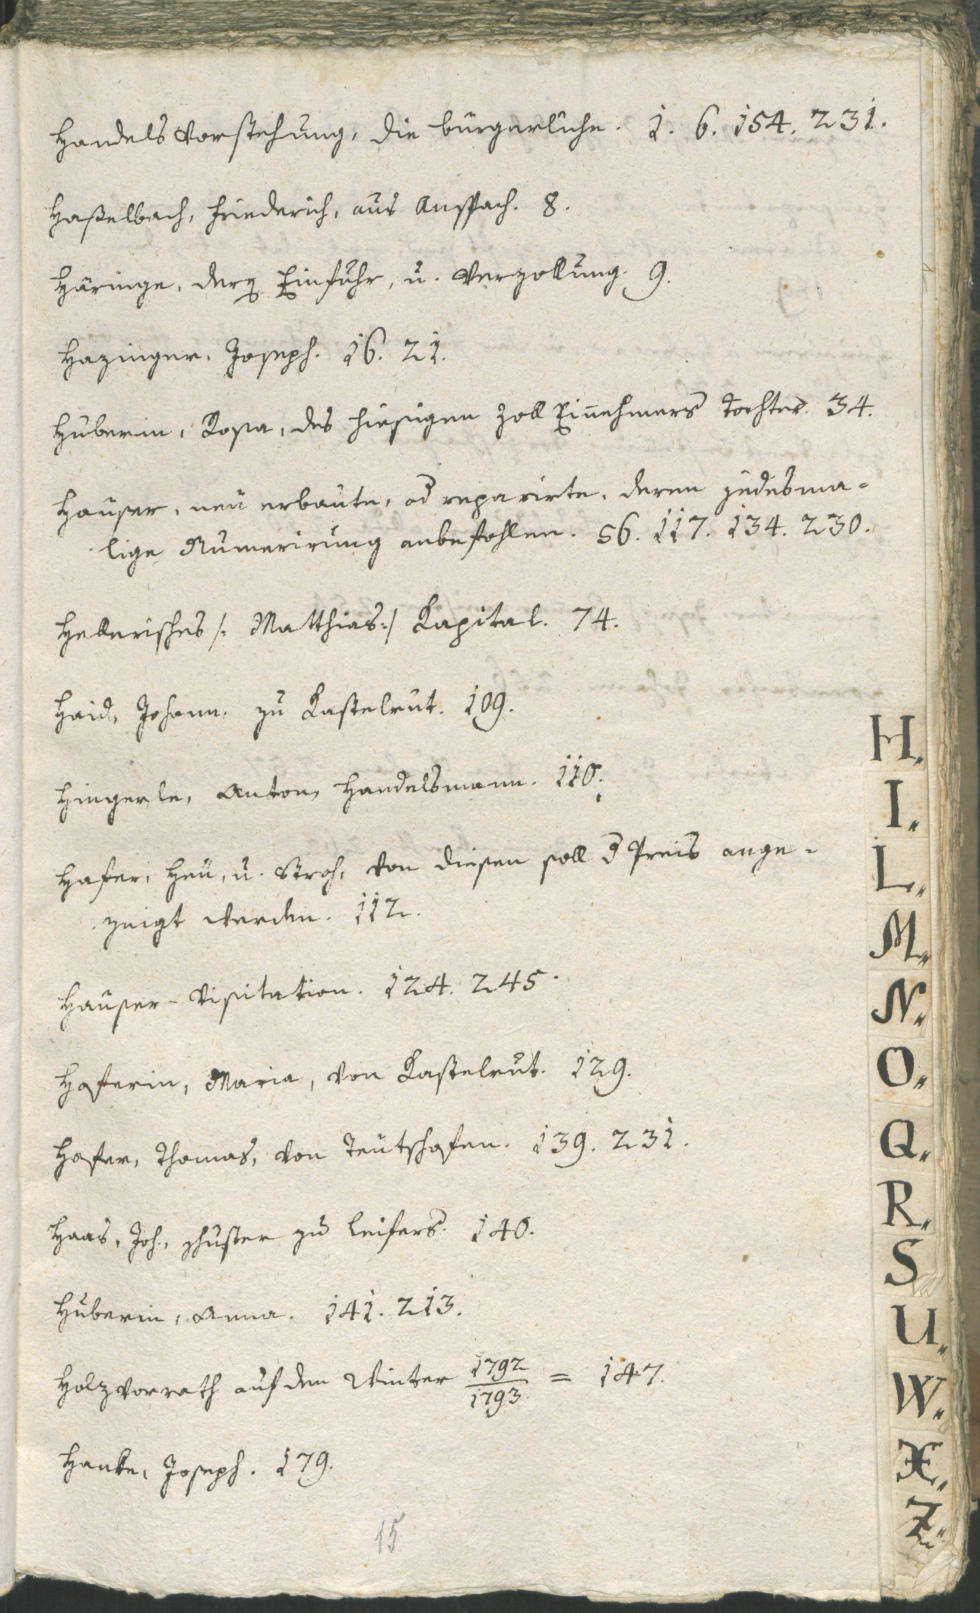 Handels Vorstehung, die bürgerliche. 1. 6. 154. 231.
Haßelbach, Friederich, aus Anspach. 8.
Häringe, derẽ Einfuhr, u. Verzollung. 9.
Hazinger, Joseph. 16. 21.
Huberin, Rosa, des hiesigen Zoll Eiñehmers Tochter. 34.
Häuser, neu erbaute, od reparirte, deren jedesma-
lige Numerirung anbefohlen. 56. 117. 134. 230.
Hellerisches /: Matthias :/ Kapital. 74.
Haid, Johann, zu Kastelrut. 109.
Hingerle, Anton, Handelsmann. 110.
Hafer, Heu, u. Stroh, von diesen soll d Preis ange-
zeigt werden. 112.
Häuser-Visitation. 124. 245.
Hoferin, Maria, von Kastelrut. 129.
Hofer, Thomas, von Teutschofen. 139. 231.
Haas, Joh., Schuster zu Leifers. 140.
Huberin, Anna. 141. 213.
Holzvorrath auf den Winter 1792/1793 = 147.
Hanke, Joseph. 179.
15
H.
I.
L.
M.
N.
O.
Q.
R.
S
U.
W.
X.
Z.